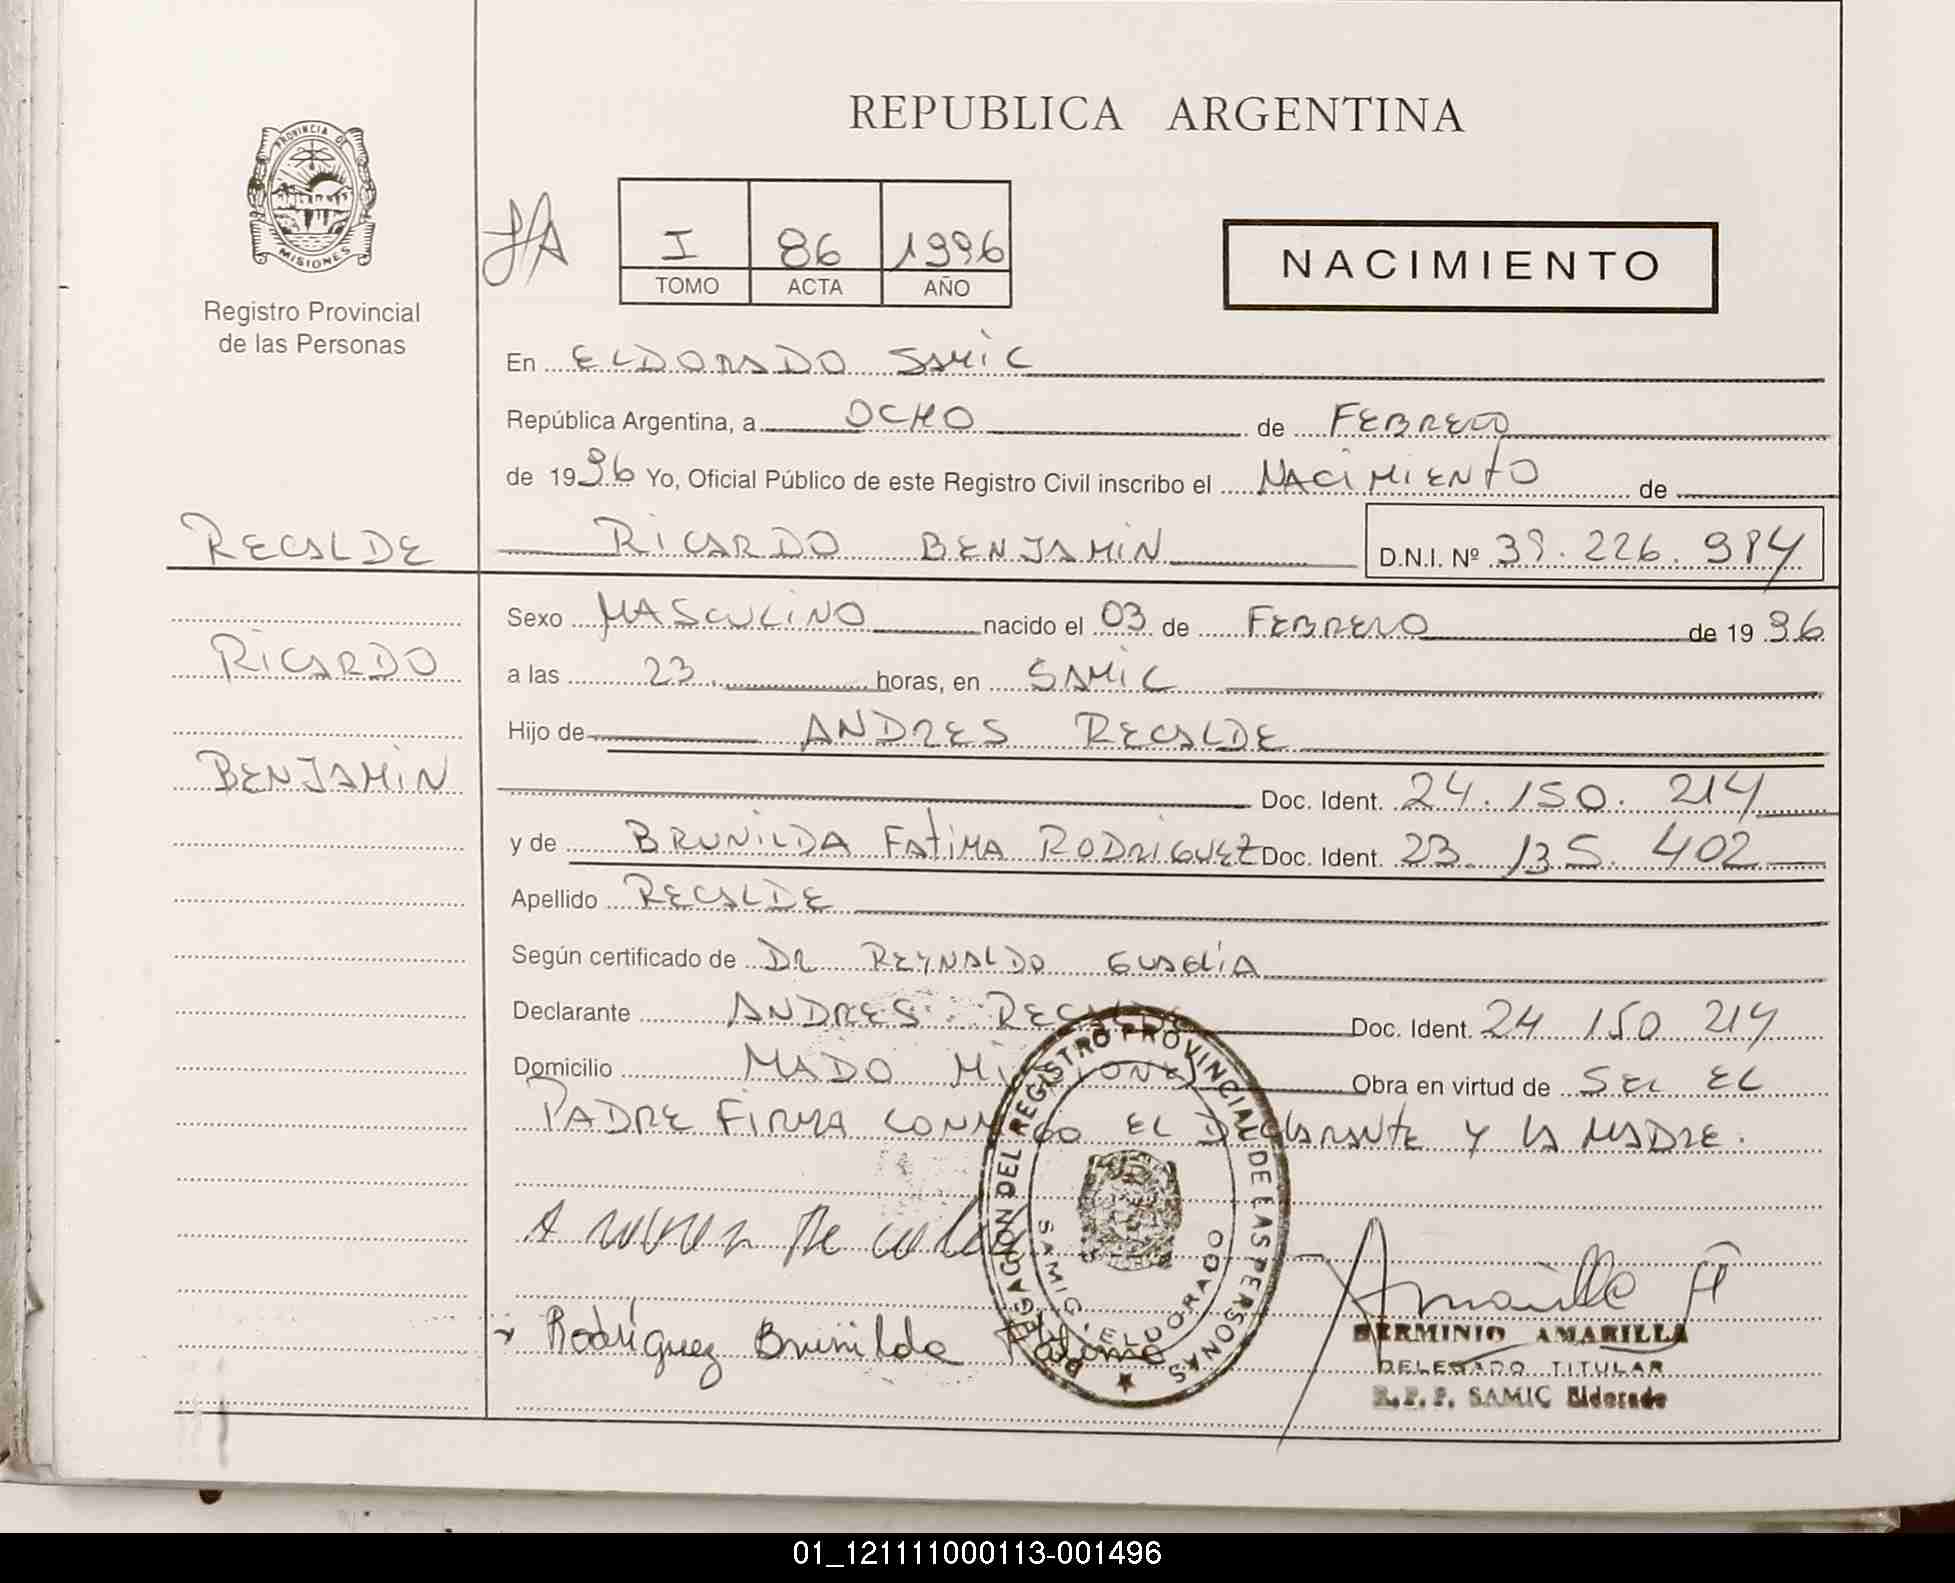 REPUBLICA ARGENTINA
PROVINCIA DE MISIONES
Registro Provincial
de las Personas
I 86 1996
TOMO ACTA AÑO
NACIMIENTO
En ELDORADO SAMIC
República Argentina, a OCHO de FEBRERO
de 1996 Yo, Oficial Público de este Registro Civil inscribo el NACIMIENTO de
RECALDE
RICARDO BENJAMIN D.N.I. Nº 39.226.984
Sexo MASCULINO nacido el 03 de FEBRERO de 1996
RICARDO
a las 23 horas, en SAMIC
Hijo de ANDRES RECALDE
BENJAMIN
Doc. Ident. 24.150.214
y de BRUNILDA FATIMA RODRIGUEZ Doc. Ident. 23.135.402
Apellido RECALDE
Según certificado de DR REYNALDO
Declarante ANDRES RECALDE Doc. Ident. 24 150 214
Domicilio MADO MISIONES Obra en virtud de SER EL
PADRE FIRMA CONMIGO EL DECLARANTE Y LA MADRE.
DELEGACION DEL REGISTRO PROVINCIAL DE LAS PERSONAS
SAMIC - ELDORADO
Rodríguez Brunilda Fátima
Amarilla H
HERMINIO AMARILLA
DELEGADO TITULAR
R.P.P. SAMIC Eldorado
01_121111000113-001496